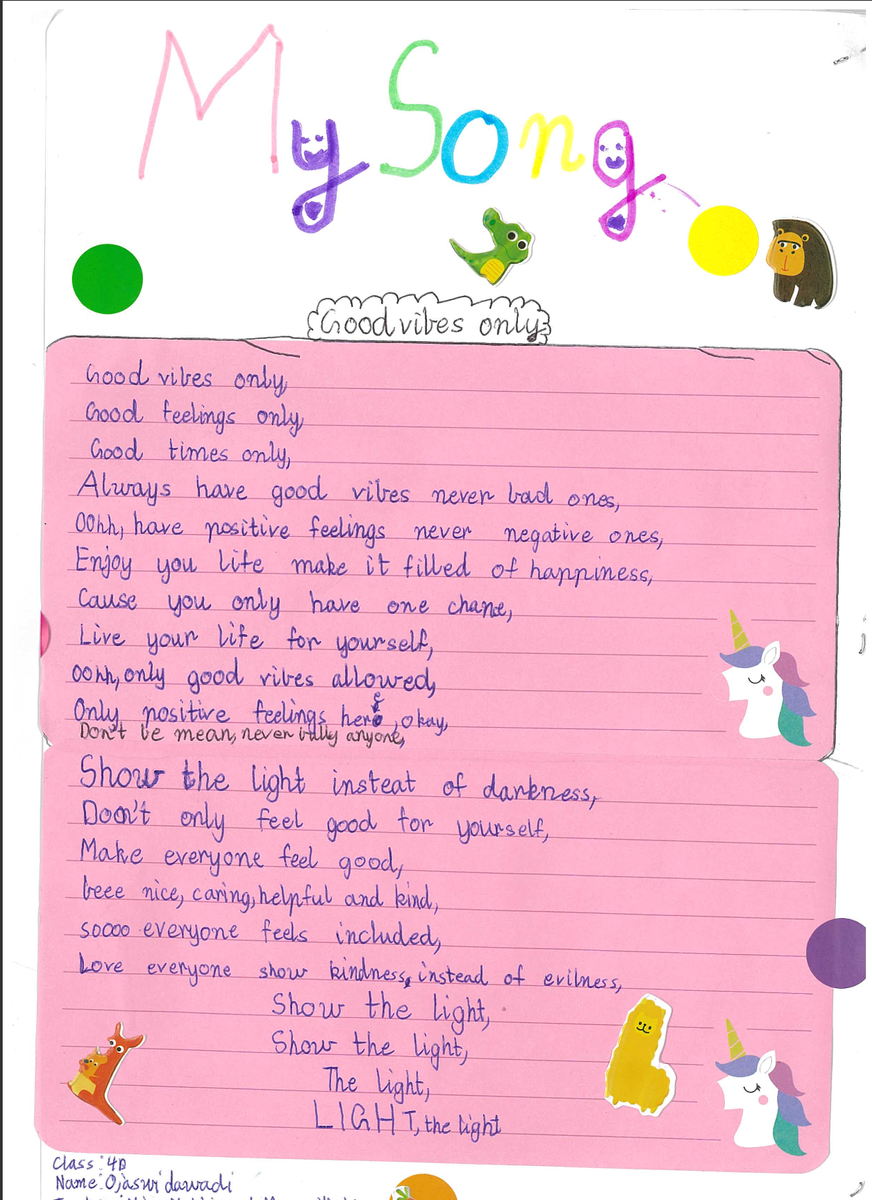 My Song
Good vibes only
Good vibes only,
Good feelings only,
Good times only,
Always have good vibes never bad ones,
OOhh, have positive feelings never negative ones,
Enjoy you life make it filled of happiness,
Cause you only have one chance,
Live your life for yourself,
oohh, only good vibes allowed,
Only positive feelings here, okay,
Don't be mean, never bully anyone,
Show the light insteat of darkness,
Doon't only feel good for yourself,
Make everyone feel good,
beee nice, caring, helpful and kind,
soooo everyone feels included,
Love everyone show kindness, instead of evilness,
Show the light,
Show the light,
The light,
LIGHT, the light
Class: 4D
Name: Ojaswi dawadi